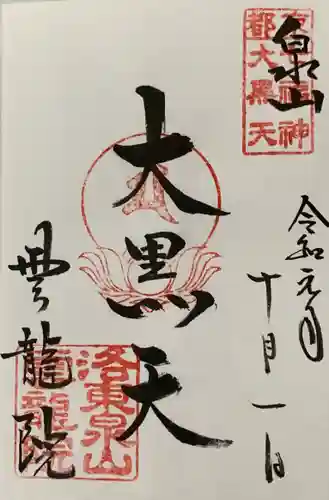 泉山
京福神
都大黒天
大黒天
令和元年
十月一日
雲龍院
洛東泉山
雲龍院